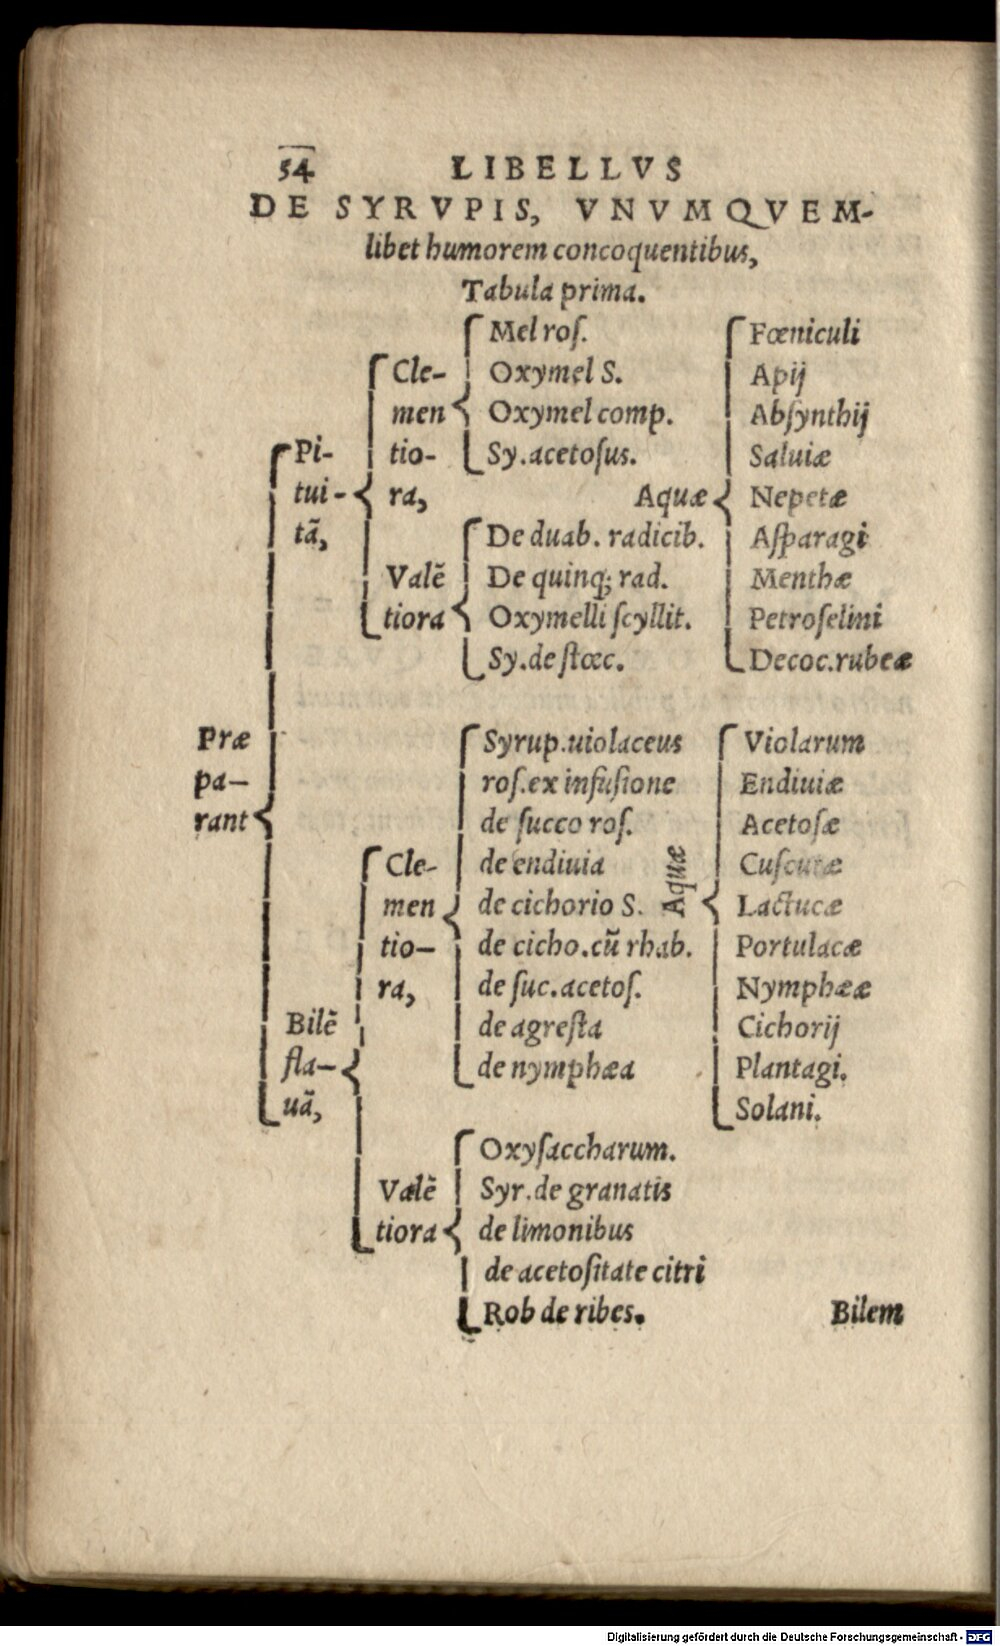 54 LIBELLVS
DE SYRVPIS, VNVMQVEM-
libet humorem concoquentibus,
Tabula prima.
Præ
pa-
rant
Pi-
tui-
tã,
Cle-
men
tio-
ra,
Mel roſ.
Oxymel S.
Oxymel comp.
Sy. acetoſus.
Valẽ
tiora
De duab. radicib.
De quinq; rad.
Oxymelli ſcyllit.
Sy. de ſtœc.
Aquæ
Fœniculi
Apij
Abſynthij
Saluiæ
Nepetæ
Aſparagi
Menthæ
Petroſelini
Decoc. rubeæ
Bilẽ
fla-
uã,
Cle-
men
tio-
ra,
Syrup. uiolaceus
roſ. ex infuſione
de ſucco roſ.
de endiuia
de cichorio S.
de cicho. cũ rhab.
de ſuc. acetoſ.
de agreſta
de nymphæa
Aquæ
Violarum
Endiuiæ
Acetoſæ
Cuſcutæ
Lactucæ
Portulacæ
Nymphææ
Cichorij
Plantagi.
Solani.
Valẽ
tiora
Oxyſaccharum.
Syr. de granatis
de limonibus
de acetoſitate citri
Rob de ribes.
Bilem
Digitalisierung gefördert durch die Deutsche Forschungsgemeinschaft - DFG